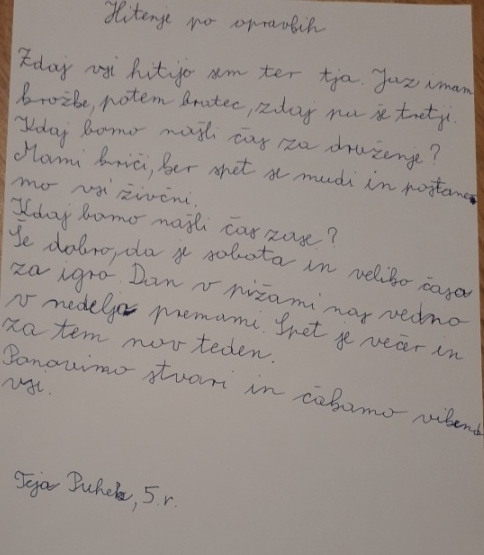 Hitenje po opravkih
Zdaj vsi hitijo sem ter tja. Jaz imam
krožke, potem bratec, zdaj pa še tretji.
Kdaj bomo našli čas za druženje?
Mami kriči, ker spet se mudi in postane
mo vsi živčni.
Kdaj bomo našli čas zase?
Še dobro, da je sobota in veliko časa
za igro. Dan v pižami nas vedno
v nedeljo premami. Spet je večer in
za tem nov teden.
Ponovimo stvari in čakamo vikend
vsi.
Teja Puhek, 5. r.